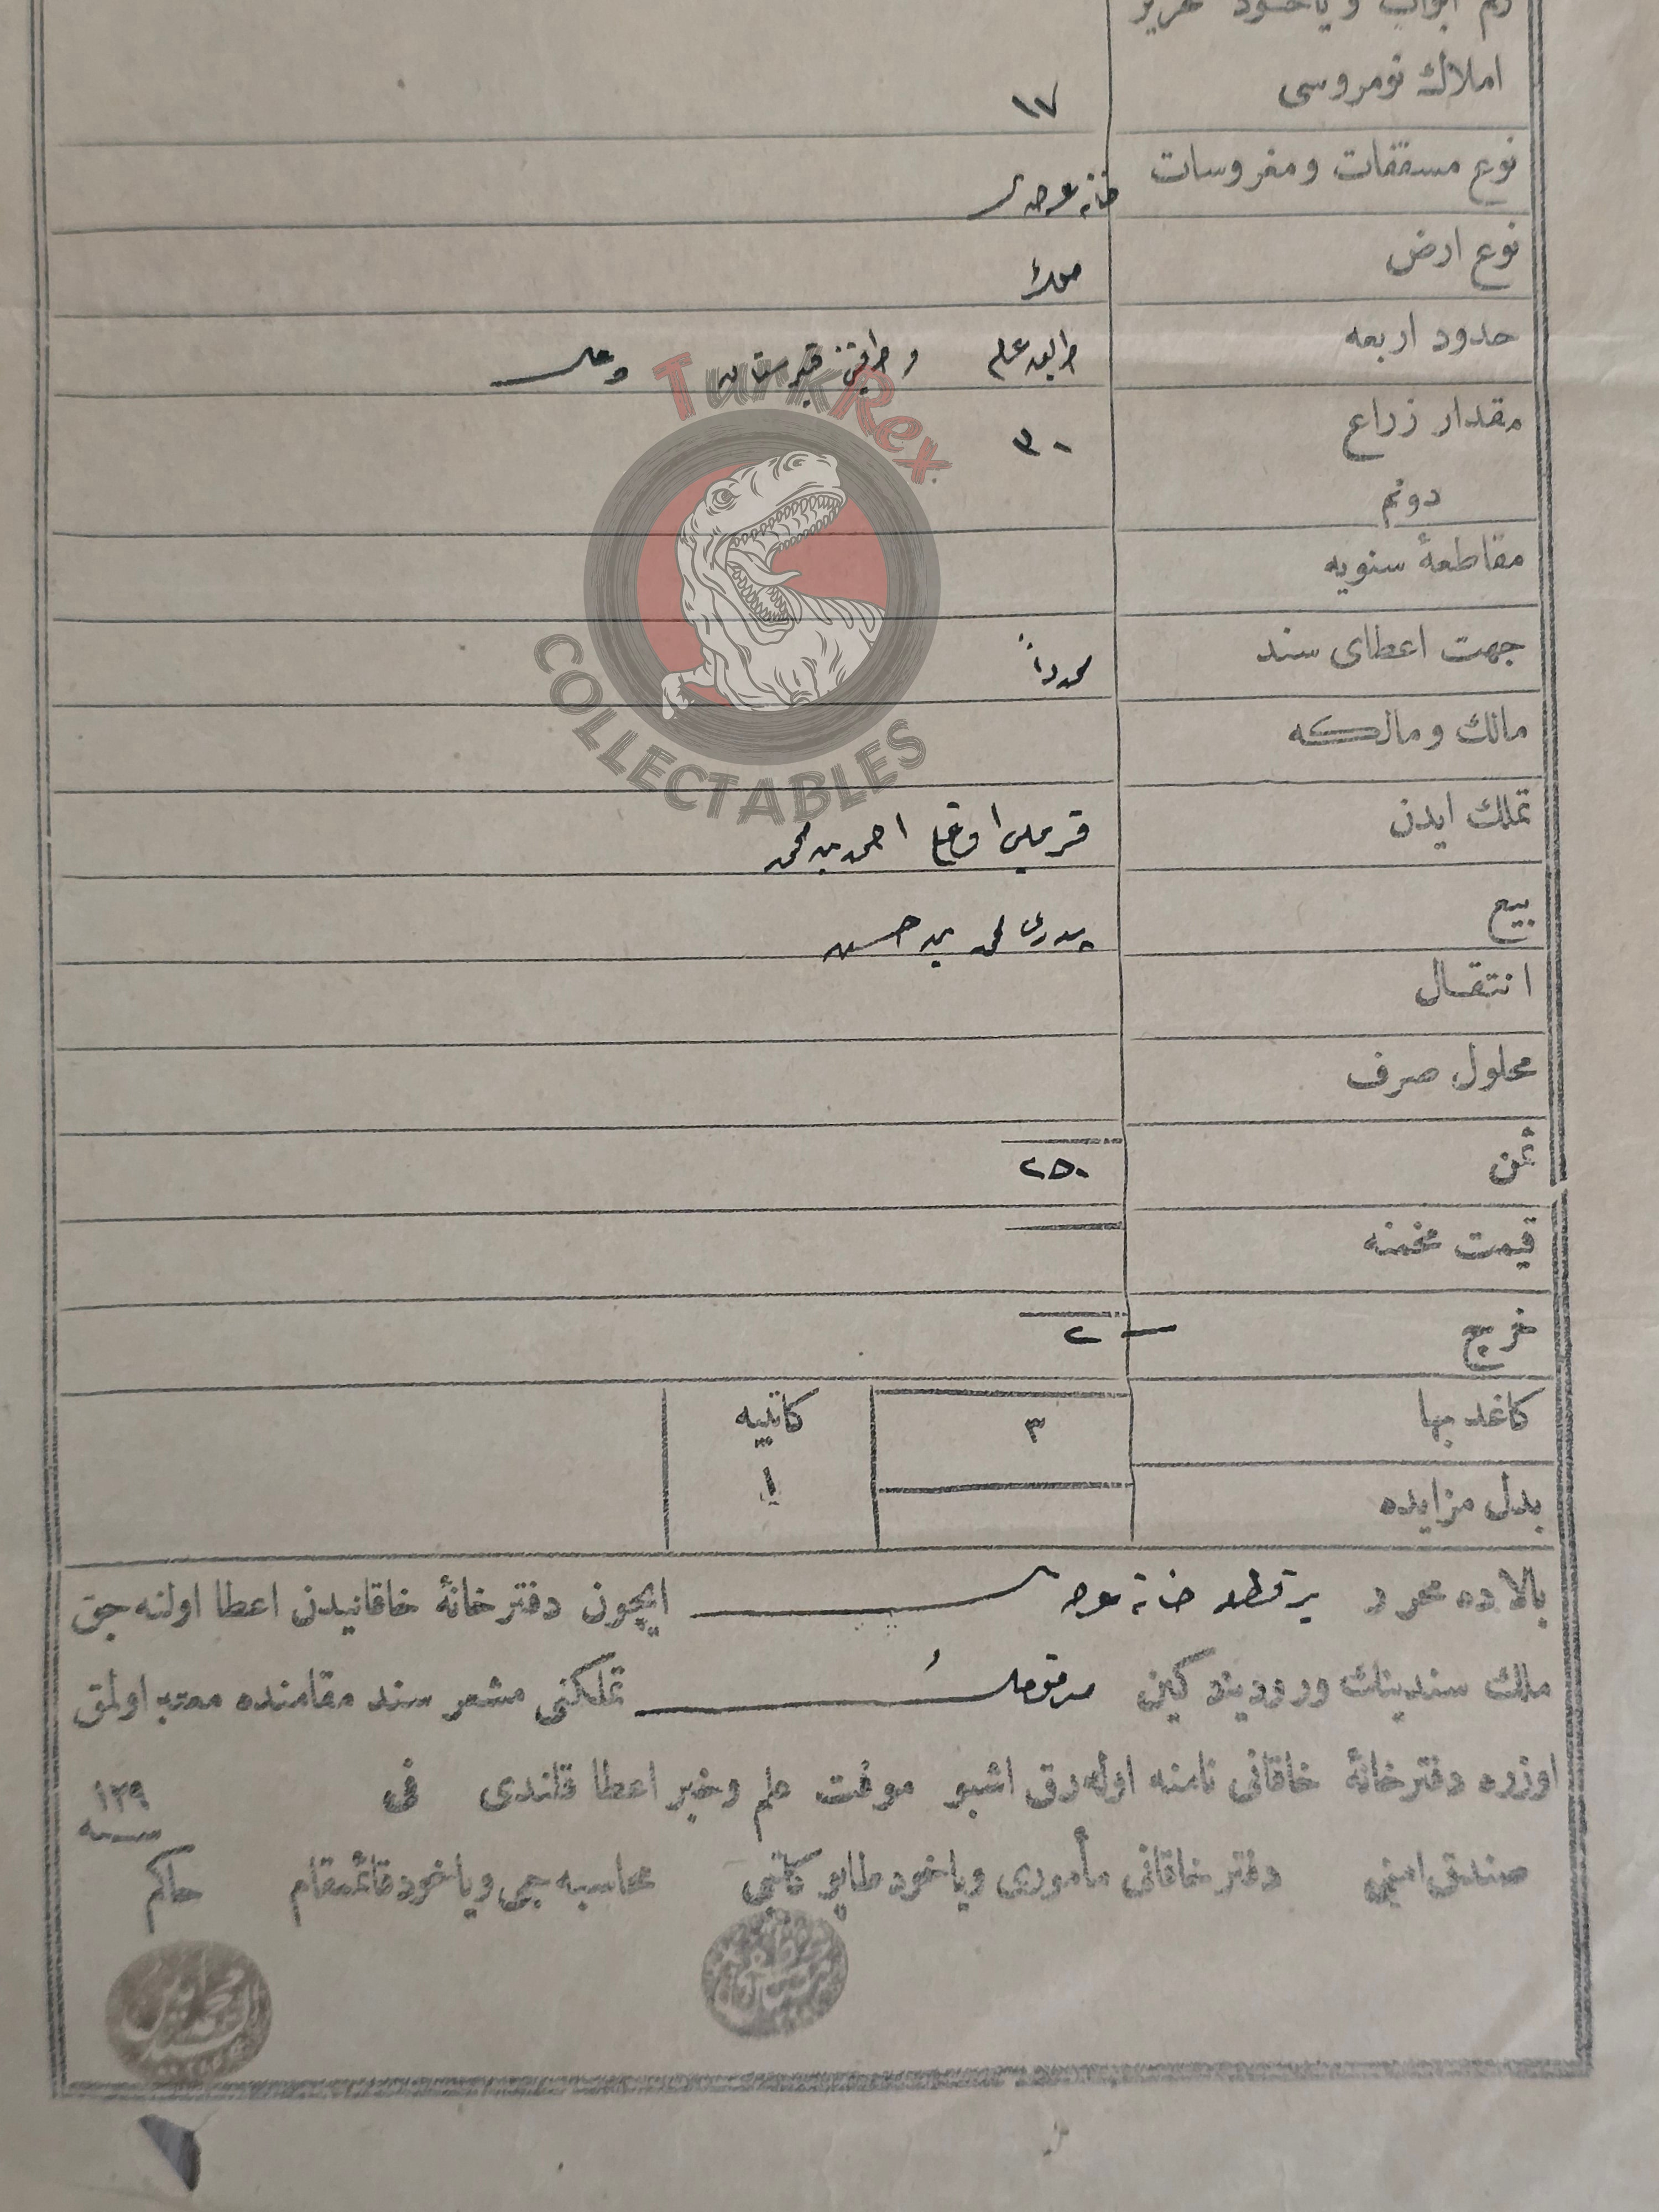 املاك نومروسی ١٧
نوع مسقفات ومغروسات خانه عرصه سی
نوع ارض ملك
حدود اربعه طریق عام و قبرستان
Turk Rex
مقدار زراع ٣٠
دونم
مقاطعهٔ سنویه
COLLECTABLES
جهت اعطای سند مجدداً
مالك ومالكه
تملك ایدن اوغلی احمد بن محمد
بیع پدری محمد بن حسن
انتقال
محلول صرف
ثمن ٢٥٠
قیمت مخمنه
خرج ٢
كاغد بها ٣ كاتبیه ١
بدل مزایده
بالاده محرر بر قطعه خانه عرصه سی ایچون دفترخانهٔ خاقانیدن اعطا اولنه جق
ملك سندینك ورودینه دكین مرقومك تملكنی مشعر سند مقامنده معتبر اولمق
اوزره دفترخانهٔ خاقانی نامنه اوله رق اشبو موقت علم وخبر اعطا قلندی فی ١٢٩
سنه
صندق امینی دفتر خاقانی مأموری ویاخود طاپو كاتبی محاسبه جی ویاخود قائمقام حاكم